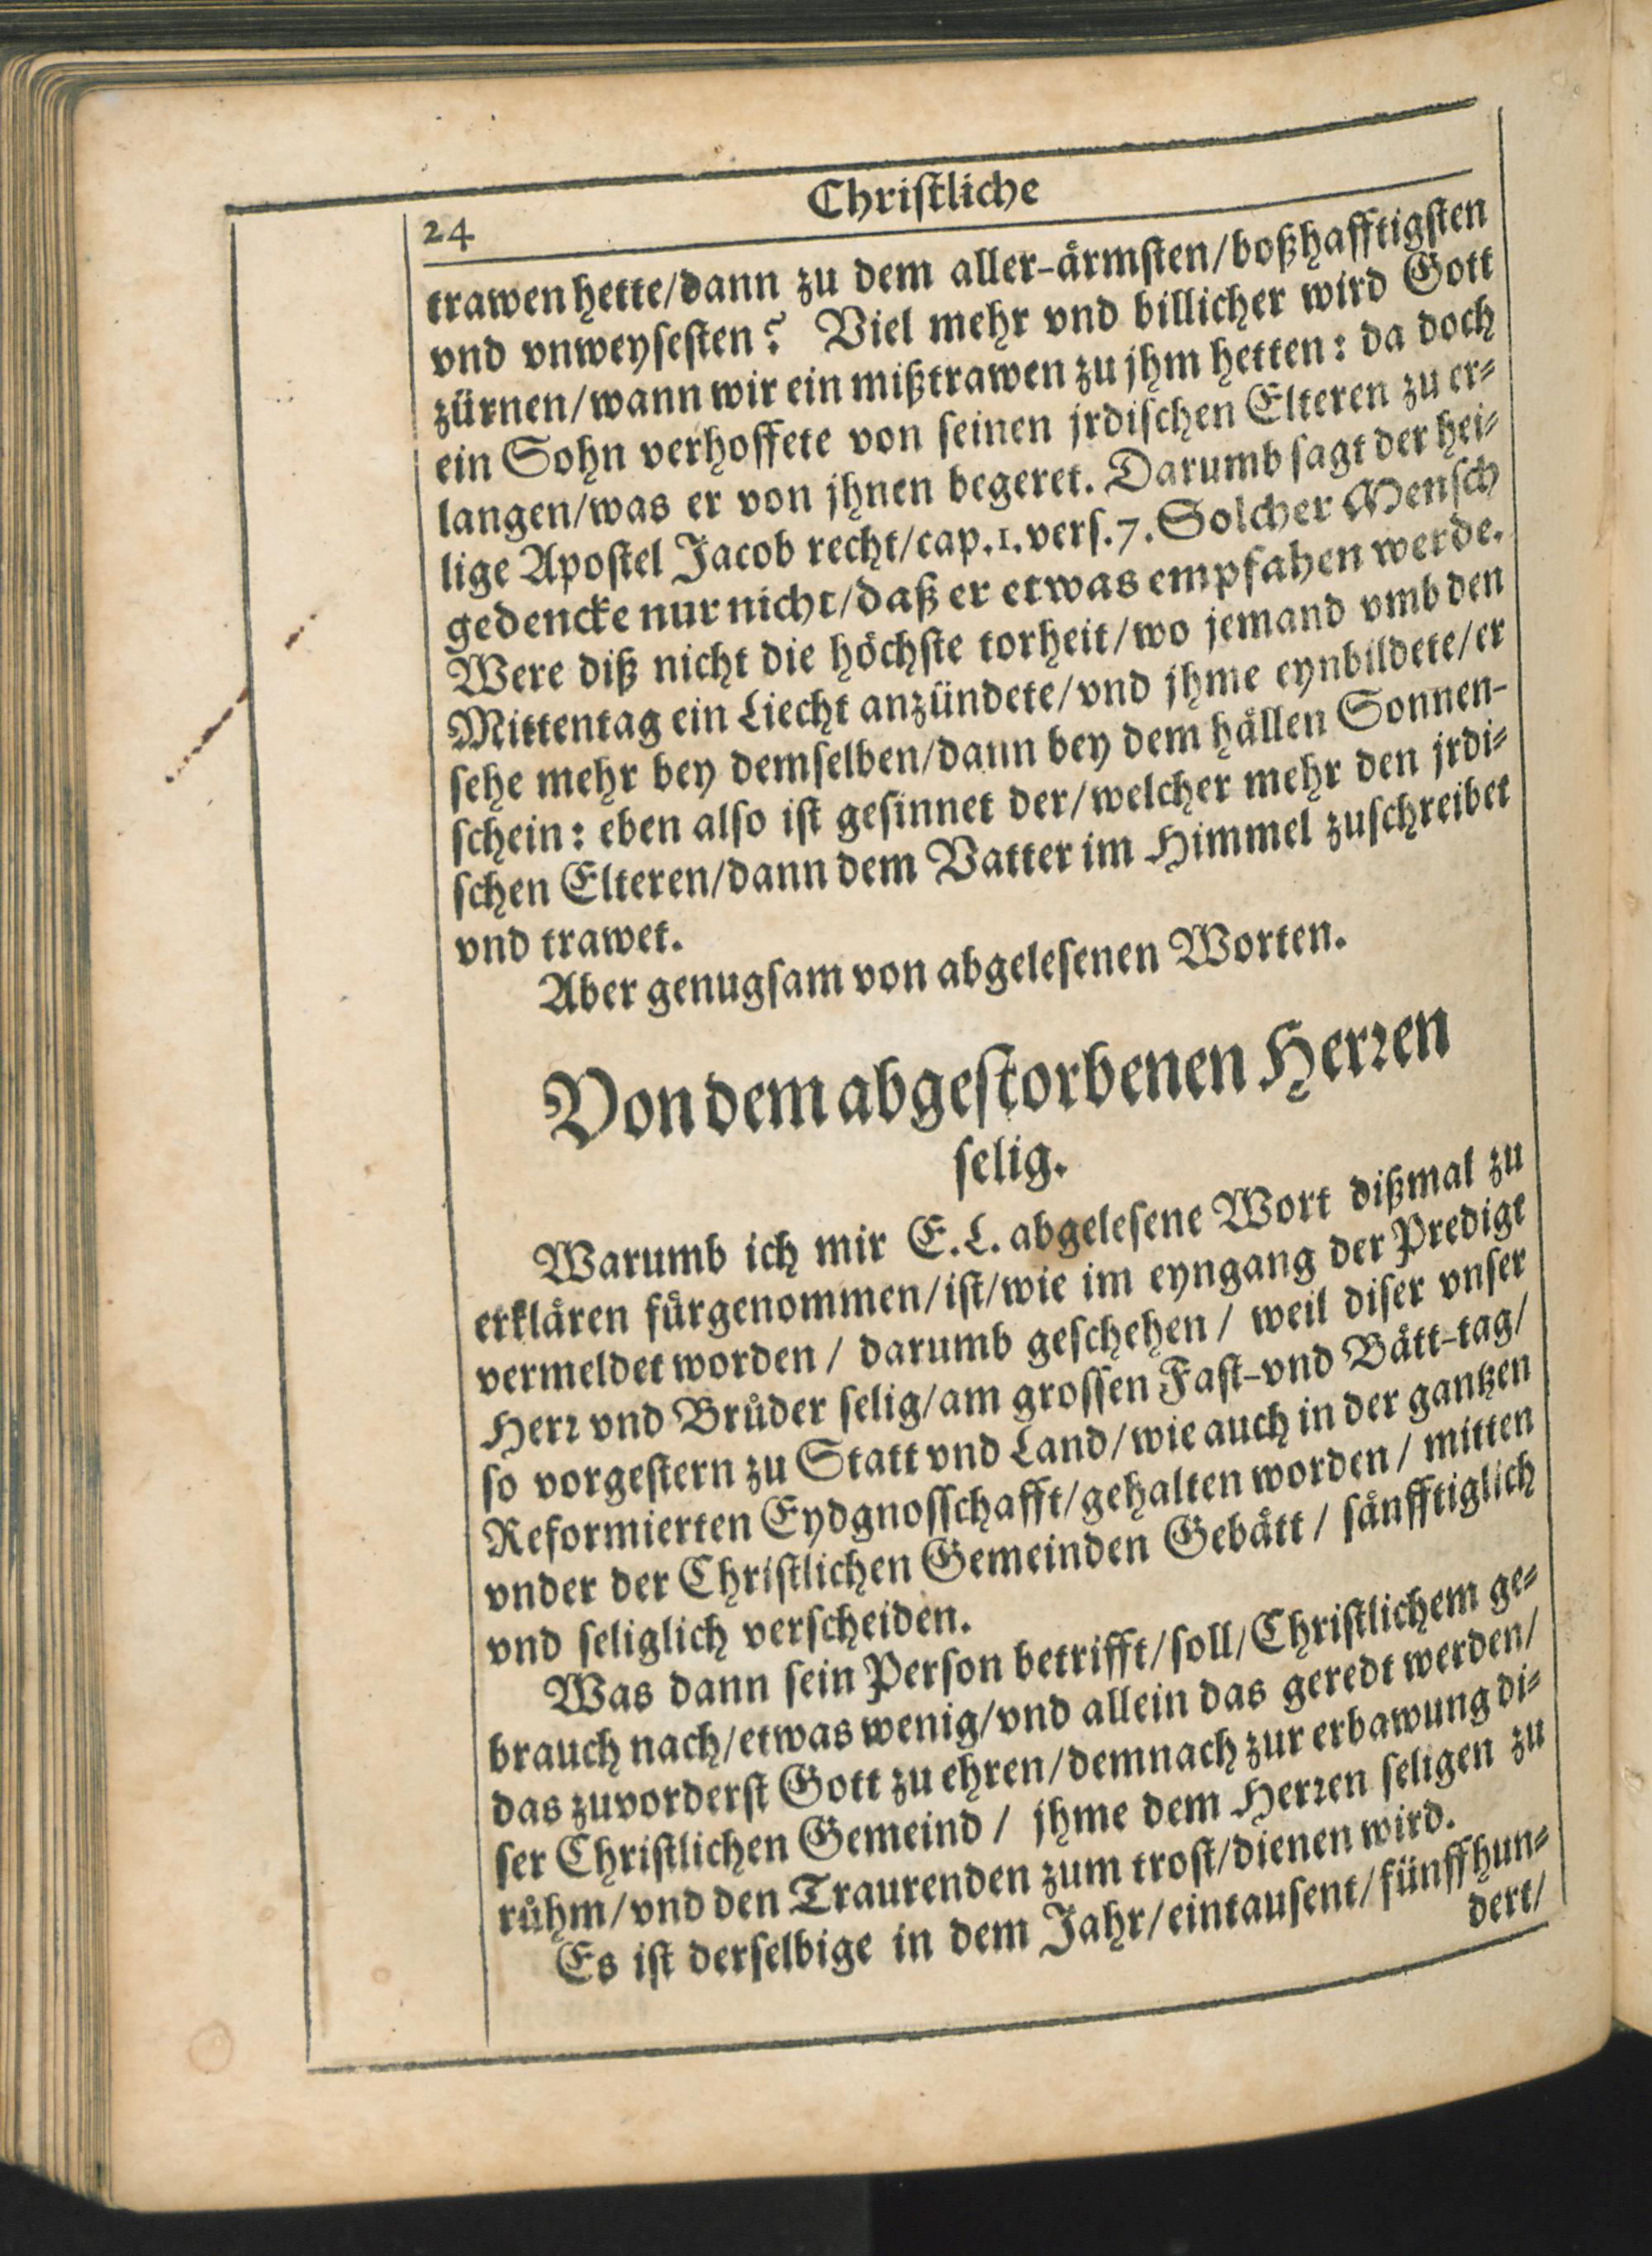 24
Chriſtliche
trawen hette/dann zu dem aller-aͤrmſten/boßhafftigſten
vnd vnweyſeſten? Viel mehr vnd billicher wird Gott
zürnen/wann wir ein mißtrawen zu jhm hetten: da doch
ein Sohn verhoffete von ſeinen jrdiſchen Elteren zu er⸗
langen/was er von jhnen begeret. Darumb ſagt der hei⸗
lige Apoſtel Jacob recht/cap.1.verſ.7. Solcher Menſch
gedencke nur nicht/daß er etwas empfahen werde.
Were diß nicht die hoͤchſte torheit/wo jemand vmb den
Mittentag ein Liecht anzündete/vnd jhme eynbildete/er
ſehe mehr bey demſelben/dann bey dem haͤllen Sonnen-
ſchein: eben alſo iſt geſinnet der/welcher mehr den jrdi⸗
ſchen Elteren/dann dem Vatter im Himmel zuſchreibet
vnd trawet.
Aber genugſam von abgeleſenen Worten.
Von dem abgeſtorbenen Herꝛen
ſelig.
Warumb ich mir E.L. abgeleſene Wort dißmal zu
erklaͤren fuͤrgenommen/iſt/wie im eyngang der Predigt
vermeldet worden/ darumb geſchehen/ weil diſer vnſer
Herꝛ vnd Bruͤder ſelig/am groſſen Faſt-vnd Baͤtt-tag/
ſo vorgeſtern zu Statt vnd Land/wie auch in der gantzen
Reformierten Eydgnoſſchafft/gehalten worden/ mitten
vnder der Chriſtlichen Gemeinden Gebaͤtt/ ſaͤnfftiglich
vnd ſeliglich verſcheiden.
Was dann ſein Perſon betrifft/ſoll/Chriſtlichem ge⸗
brauch nach/etwas wenig/vnd allein das geredt werden/
das zuvorderſt Gott zu ehren/demnach zur erbawung di⸗
ſer Chriſtlichen Gemeind/ jhme dem Herꝛen ſeligen zu
ruͤhm/vnd den Traurenden zum troſt/dienen wird.
Es iſt derſelbige in dem Jahr/eintauſent/fünffhun⸗
dert/